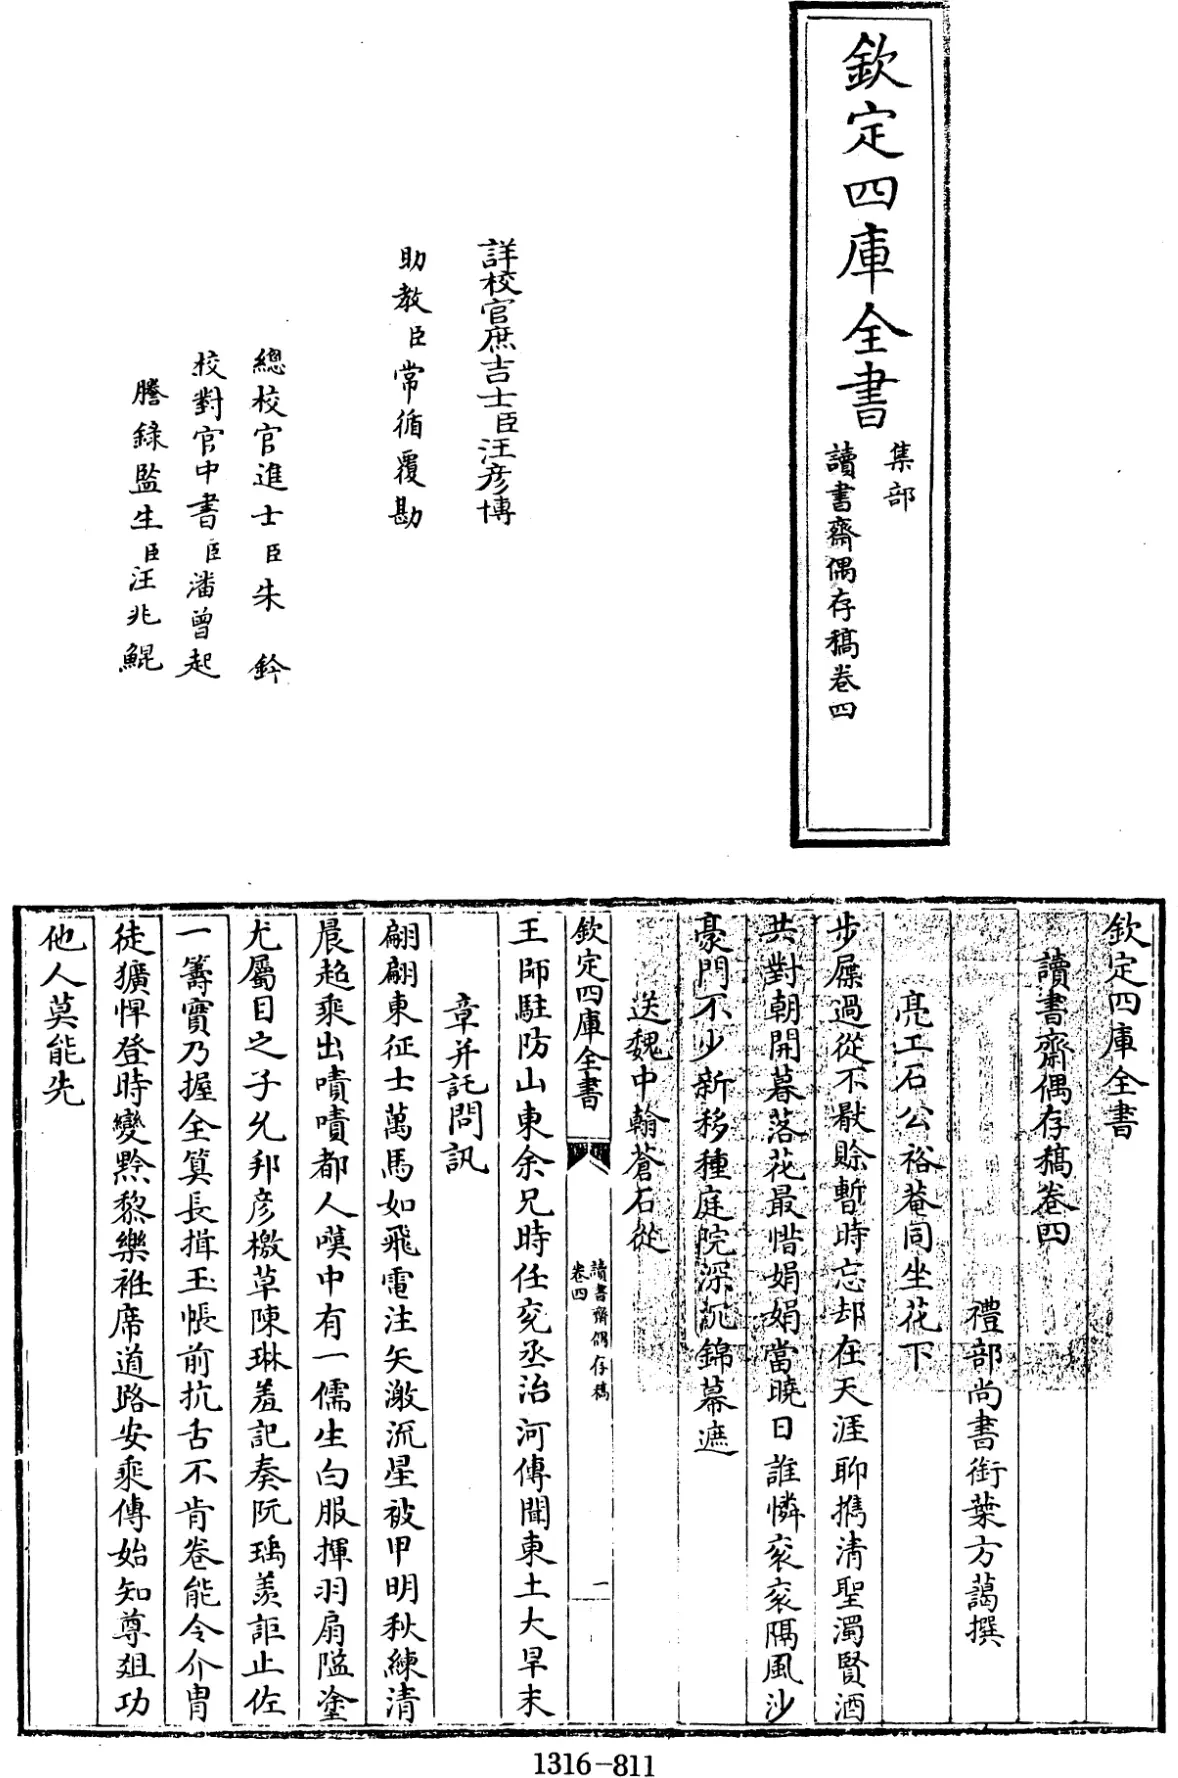 欽定四庫全書
集部
讀書齋偶存稿卷四
詳校官庶吉士臣汪彥博
助教臣常循覆勘
總校官進士臣朱鈐
校對官中書臣潘曾起
謄錄監生臣汪兆鯤
欽定四庫全書
讀書齋偶存稿卷四
禮部尚書銜葉方藹撰
亮工石公裕菴同坐花下
步屧過從不厭賒暫時忘却在天涯聊携清聖濁賢酒
共對朝開暮落花最惜娟娟當曉日誰憐衮衮隔風沙
豪門不少新移種庭院深沉錦幕遮
送魏中翰蒼石從
欽定四庫全書
讀書齋偶存稿
卷四
一
王師駐防山東余兄時任兖丞治河傳聞東土大旱末
章并託問訊
翩翩東征士萬馬如飛電注矢激流星被甲明秋練清
晨趍乘出嘖嘖都人嘆中有一儒生白服揮羽扇隘塗
尤屬目之子允邦彥檄草陳琳羞記奏阮瑀羨詎止佐
一籌實乃握全算長揖玉帳前抗舌不肯卷能令介胄
徒獷悍登時變黔黎樂袵席道路安乘傳始知尊爼功
他人莫能先
1316-811